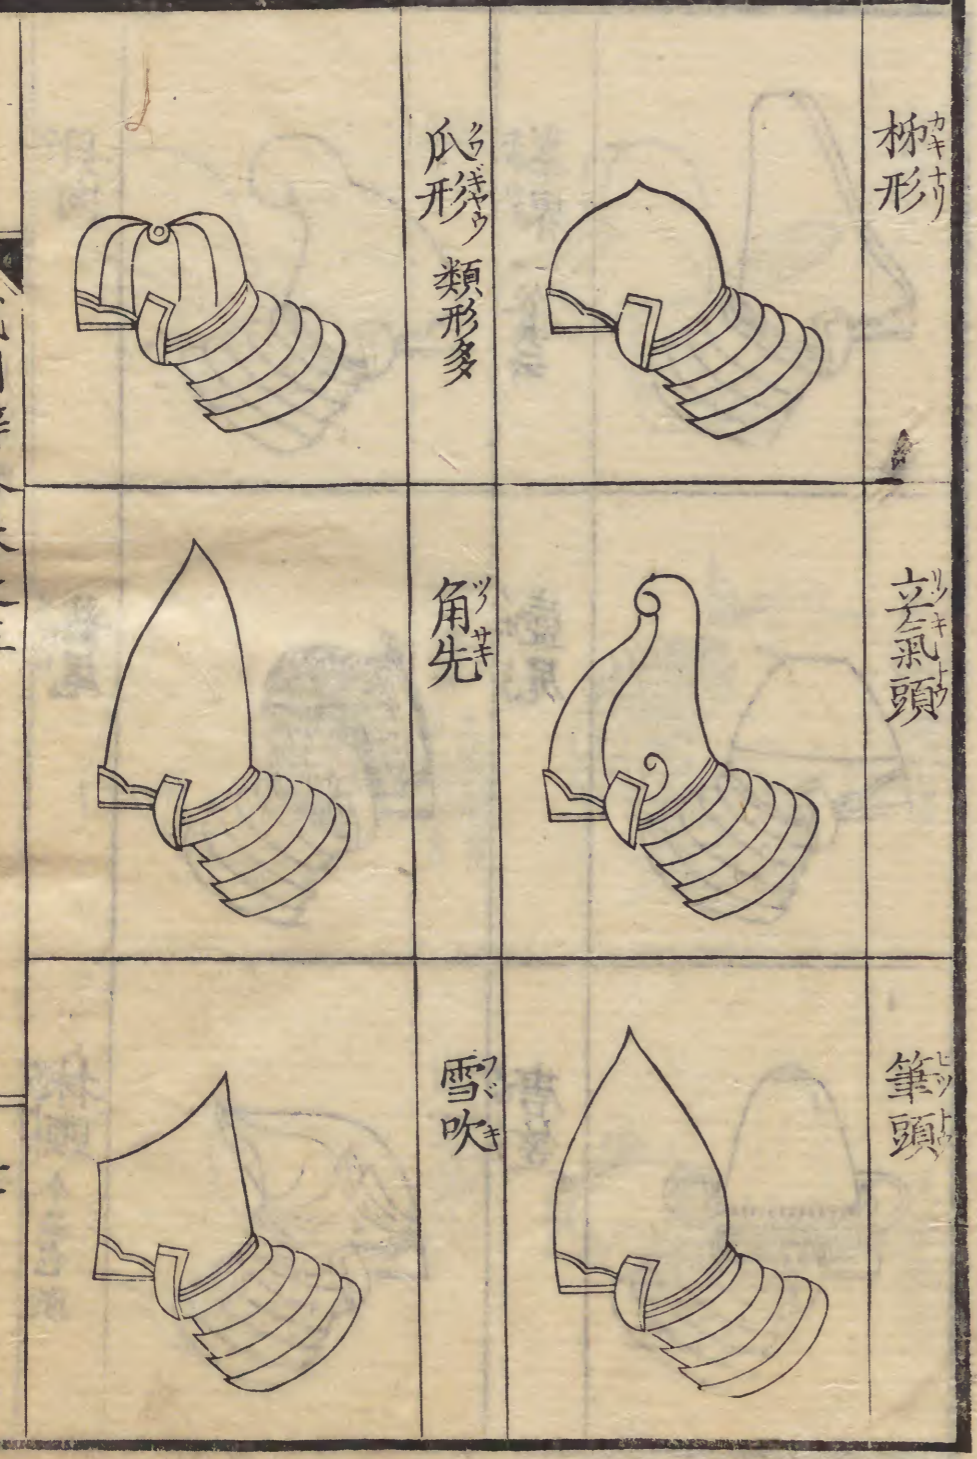 柹形 カキナリ
立氣頭 リツキトウ
筆頭 ヒツトウ
瓜形 クワギヤウ 類形多
角先 ツノサキ
雪吹 フヾキ